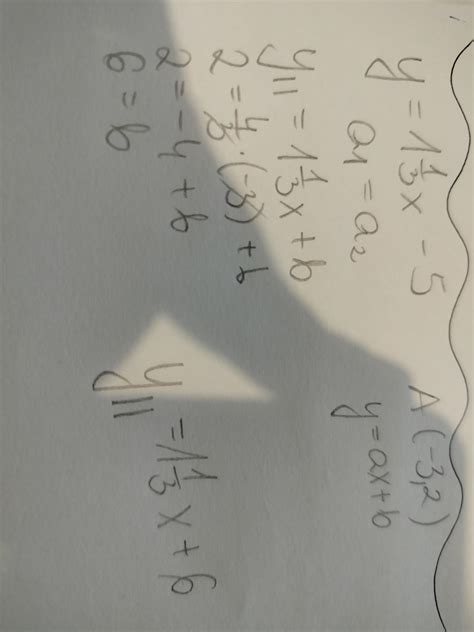 y = 1 1/3 x - 5
A (-3,2)
a₁ = a₂
y = ax + b
y₁₁ = 1 1/3 x + b
2 = 4/3 · (-3) + b
2 = -4 + b
6 = b
y₁₁ = 1 1/3 x + 6